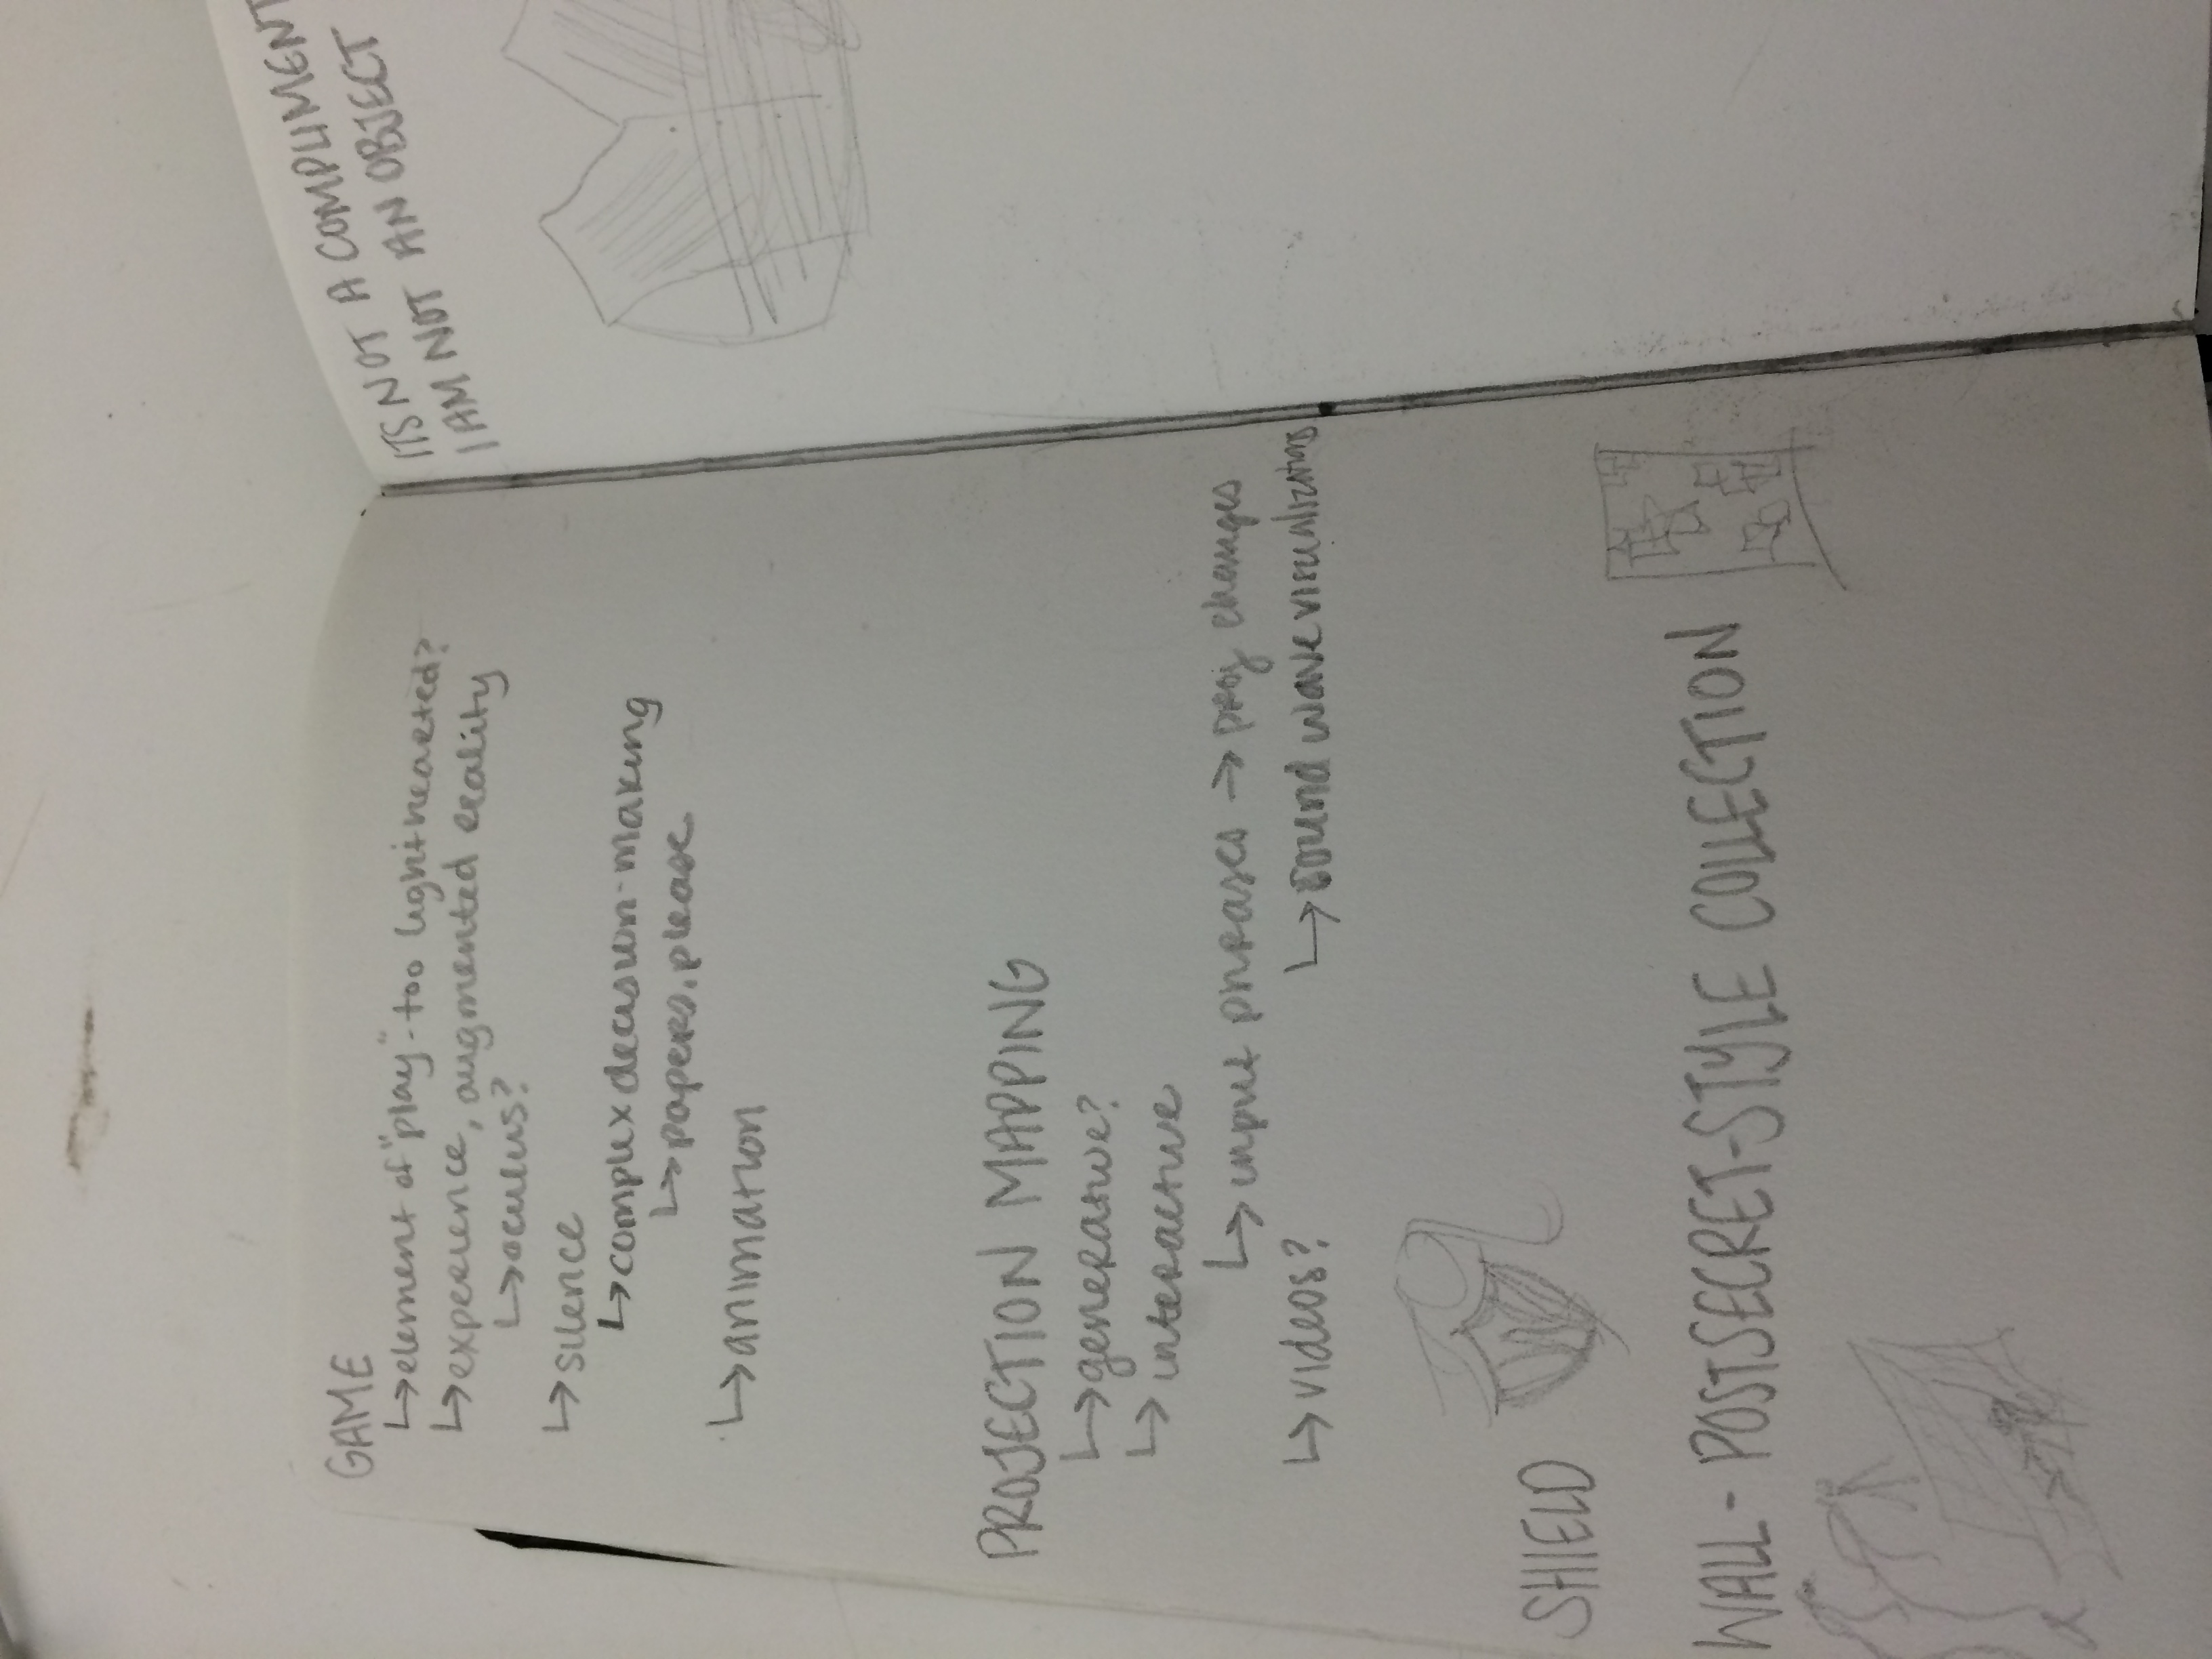 GAME
↳ element of "play" - too lighthearted?
↳ experience, augmented reality
↳ oculus?
↳ silence
↳ complex decision-making
↳ papers, please
↳ animation
PROJECTION MAPPING
↳ generative?
↳ interactive
↳ input phrases → proj changes
↳ videos?
↳ sound wave visualizations
SHIELD
WALL - POSTSECRET-STYLE COLLECTION
ITS NOT A COMPLIMENT
I AM NOT AN OBJECT